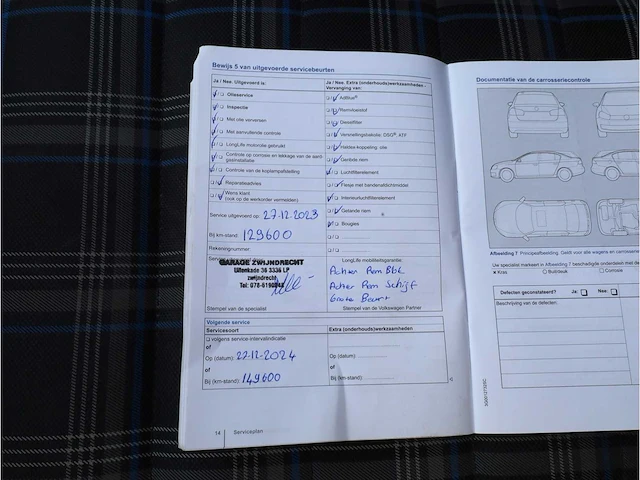 Bewijs 5 van uitgevoerde servicebeurten
Ja / Nee. Uitgevoerd is:
Olieservice
Inspectie
Met olie verversen
Met aanvullende controle
LongLife motorolie gebruikt
Controle op corrosie en lekkage van de aardgasinstallatie
Controle van de koplampafstelling
Reparatieadvies
Wens klant
(ook op de werkorder vermelden)
Service uitgevoerd op: 27.12.2023
Bij km-stand: 129600
Rekeningnummer:
GARAGE ZWIJNDRECHT
Uilenkade 36 3336 LP
zwijndrecht
Stempel van de specialist
Ja / Nee. Extra (onderhouds)werkzaamheden -
Vervanging van:
AdBlue®
Remvloeistof
Dieselfilter
Versnellingsbakolie, DSG®, ATF
Haldex-koppeling: olie
Getande riem
Luchtfilterelement
Flesje met bandenafdichtmiddel
Interieurluchtfilterelement
Getande riem
Bougies
LongLife mobiliteitsgarantie:
Achter Rem Blok
Achter Rem Schijf
Grote Beurt
Stempel van de Volkswagen Partner
Volgende service
Servicesoort
Extra (onderhouds)werkzaamheden
volgens service-intervalindicatie
of
Op (datum): 27-12-2024
Op (datum):
of
of
Bij (km-stand): 149600
Bij (km-stand):
14 Serviceplan
Documentatie van de carrosseriecontrole
Afbeelding 7 Principeafbeelding: Geldt voor alle wagens en carrosserie
Uw specialist markeert in Afbeelding 7 beschadigde onderdelen met de
Kras
Buil/deuk
Corrosie
Defecten geconstateerd? Ja: Nee:
Beschrijving van de defecten: